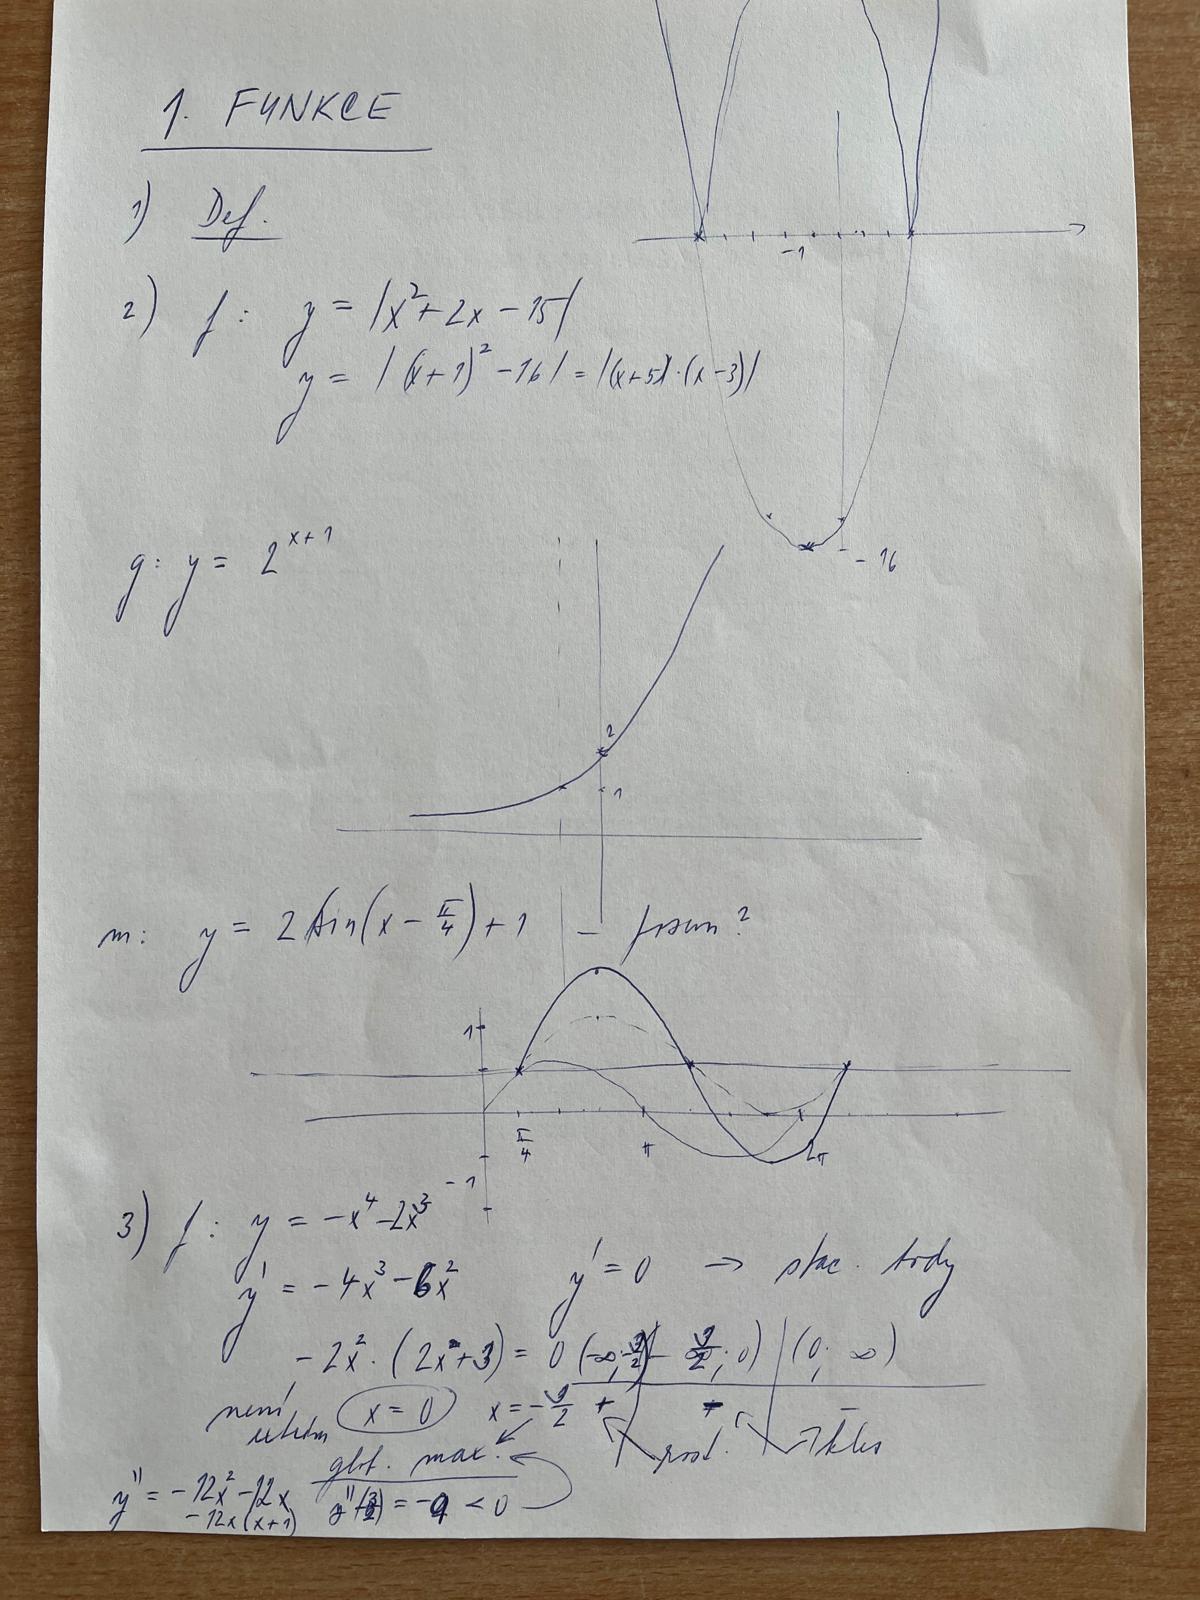 1. FUNKCE
1) Def.
-1
2) f: y = |x² + 2x - 15|
y = |(x+1)² - 16| = |(x+5)·(x-3)|
-16
g: y = 2^(x+1)
2
1
m: y = 2 sin(x - π/4) + 1 – posun?
1
π/4 π 2π
-1
3) f: y = -x⁴ - 2x³
y' = -4x³ - 6x² y' = 0 → stac. body
-2x²·(2x+3) = 0 (-∞; -3/2) | -3/2; 0) | (0; ∞)
není extrém x = 0 x = -3/2 + + -
rost. kles
glob. max.
y'' = -12x² - 12x y''(-3/2) = -9 < 0
-12x(x+1)